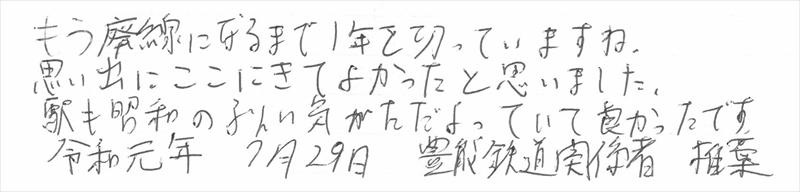 もう廃線になるまで1年を切っていますね。
思い出にここにきてよかったと思いました。
駅も昭和のふんい気がただよっていて良かったです
令和元年 7月29日 豊能鉄道関係者 椎葉